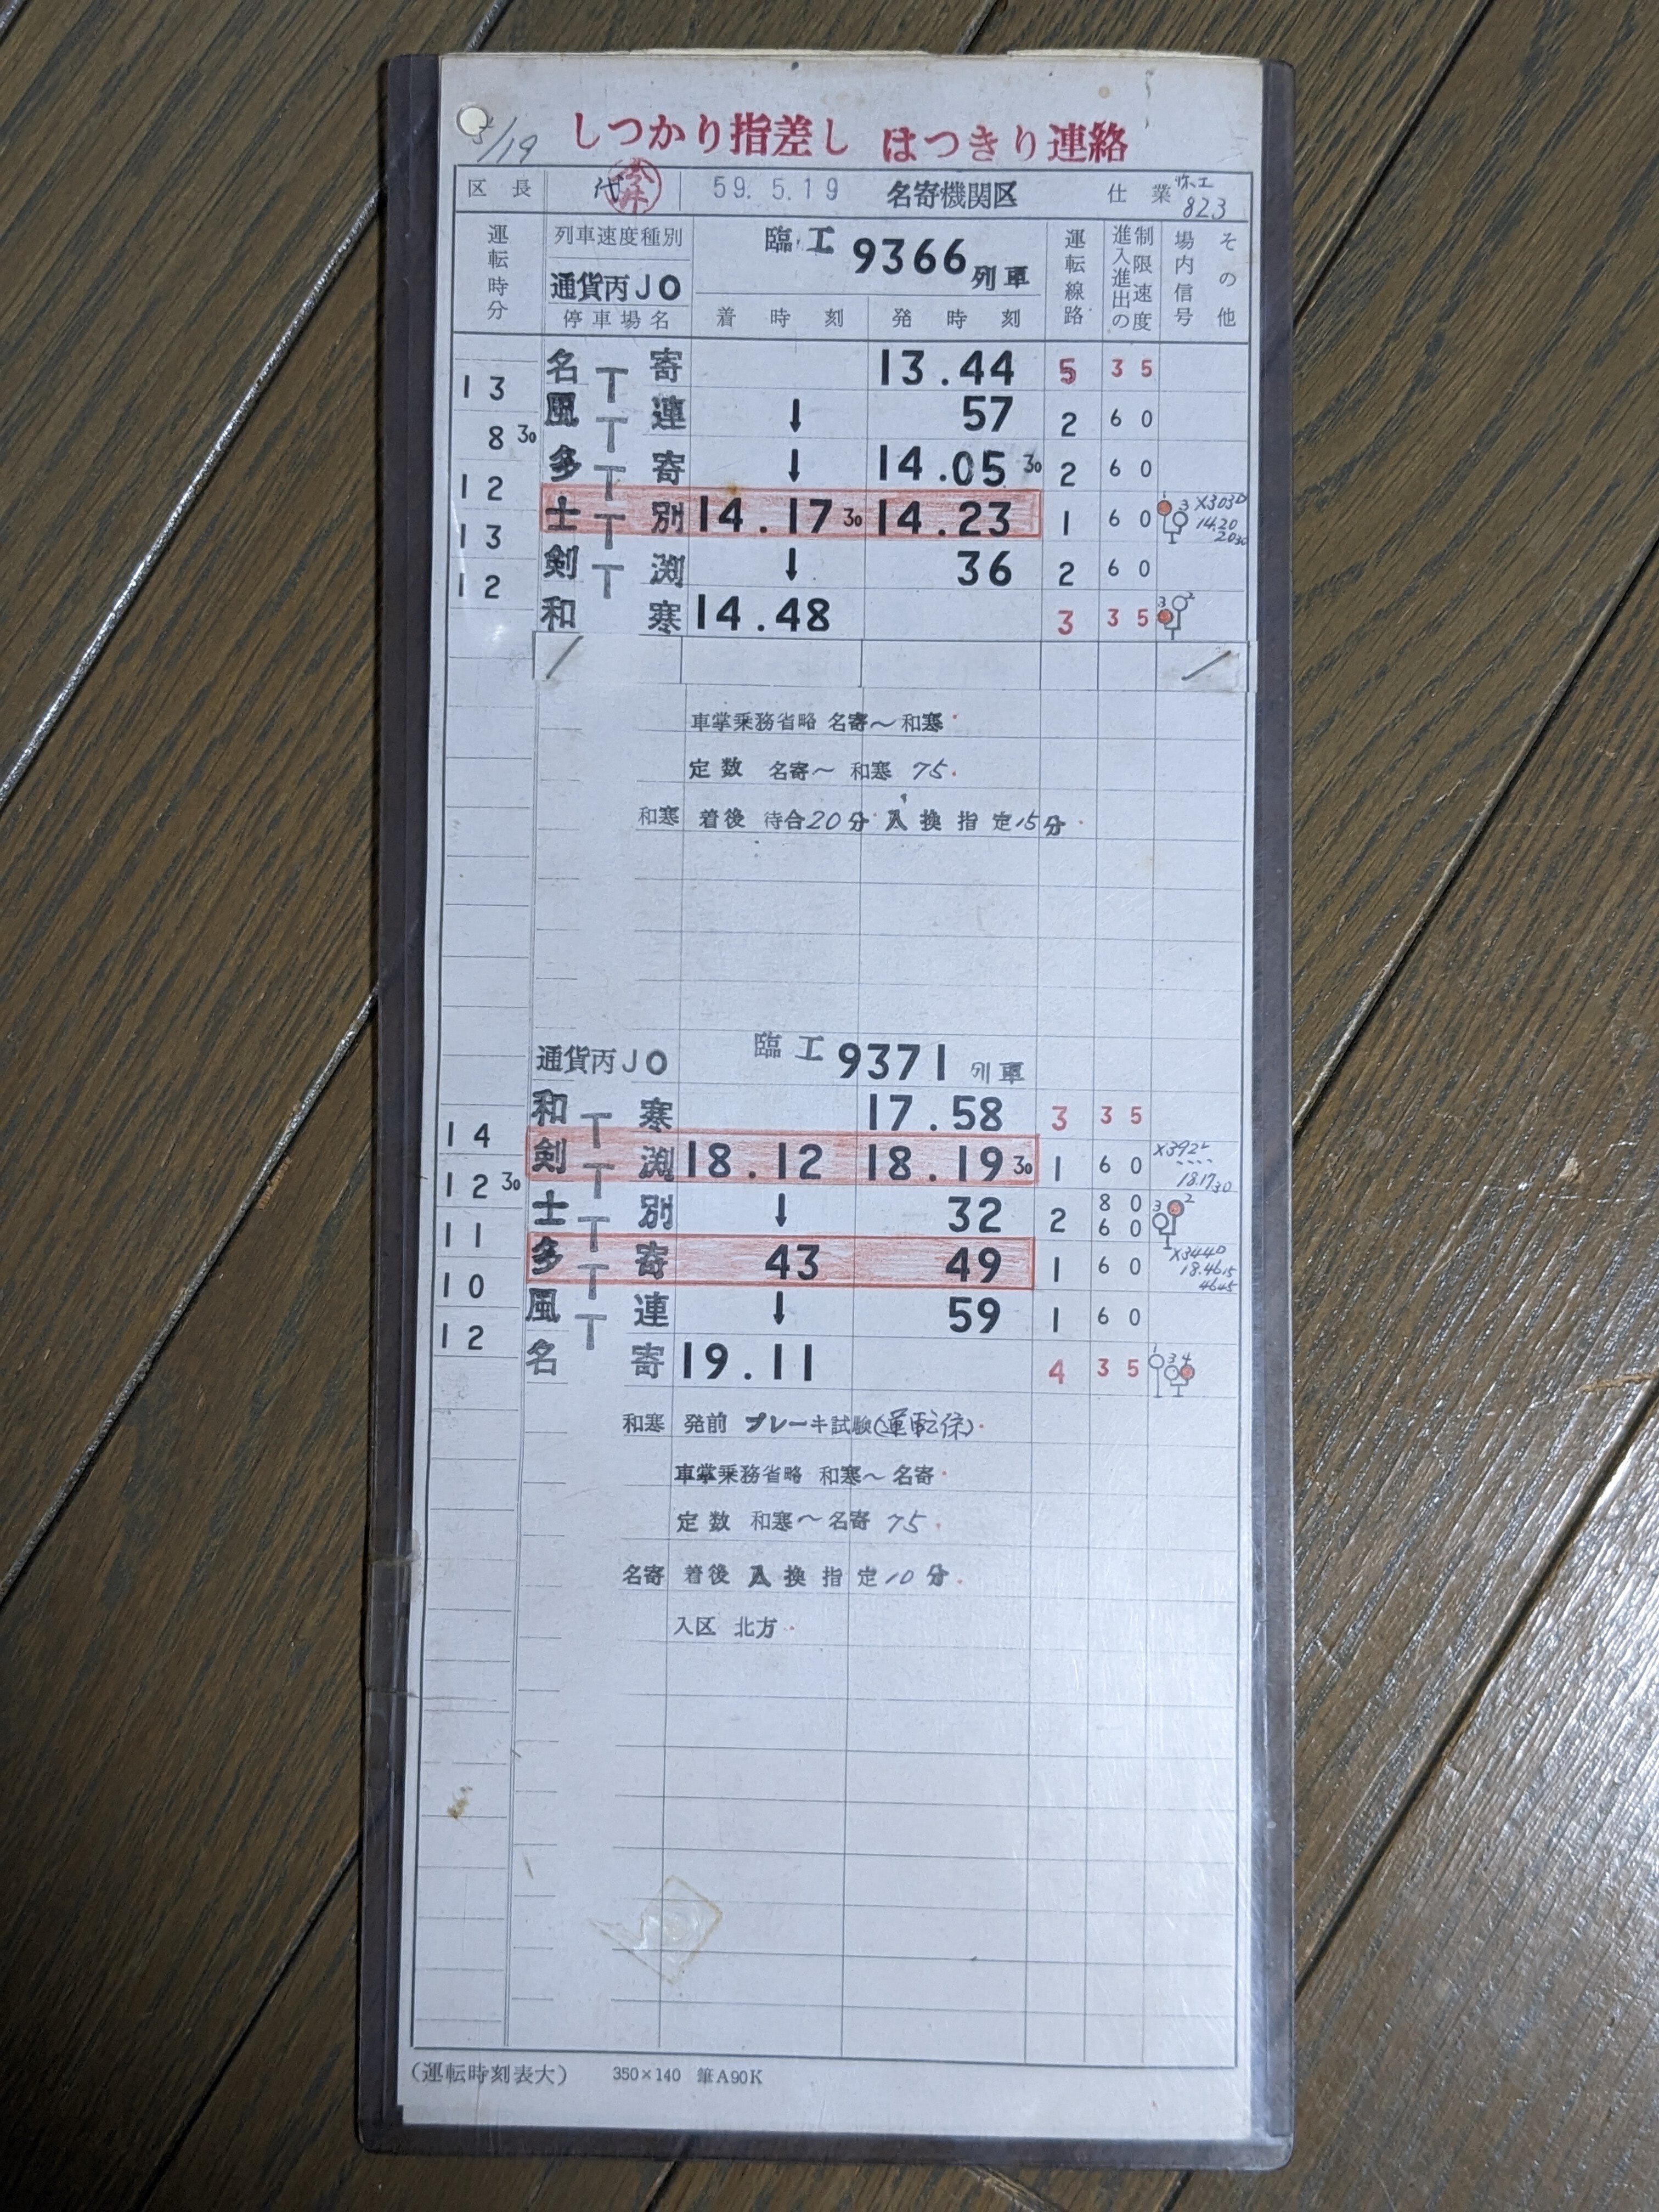 しつかり指差し はつきり連絡
5/19
区長 代 59.5.19 名寄機関区 仕業 823
運転時分 列車速度種別 臨工 9366 列車 運転線路 制限速度 進入進出の 場内信号 その他
通貨丙JO
停車場名 着時刻 発時刻
名寄 13.44 5 35
13
風連 ↓ 57 2 60
8 30
多寄 ↓ 14.05 30 2 60
12
士別 14.17 30 14.23 1 60 1 3 X303D 14.20 20 30
13
剣渕 ↓ 36 2 60
12
和寒 14.48 3 35 3 2
車掌乗務省略 名寄〜和寒
定数 名寄〜和寒 75.
和寒 着後 待合20分 入換指定15分
通貨丙JO 臨工 9371 列車
和寒 17.58 3 35
14
剣渕 18.12 18.19 30 1 60 18.17 30
12 30
士別 ↓ 32 2 80 60 3 2
11
多寄 43 49 1 60 X344D 18.46 15 46 45
10
風連 ↓ 59 1 60
12
名寄 19.11 4 35 1 3 4
和寒 発前 ブレーキ試験(運転係)
車掌乗務省略 和寒〜名寄
定数 和寒〜名寄 75.
名寄 着後 入換指定10分.
入区 北方
(運転時刻表大) 350×140 筆A90K